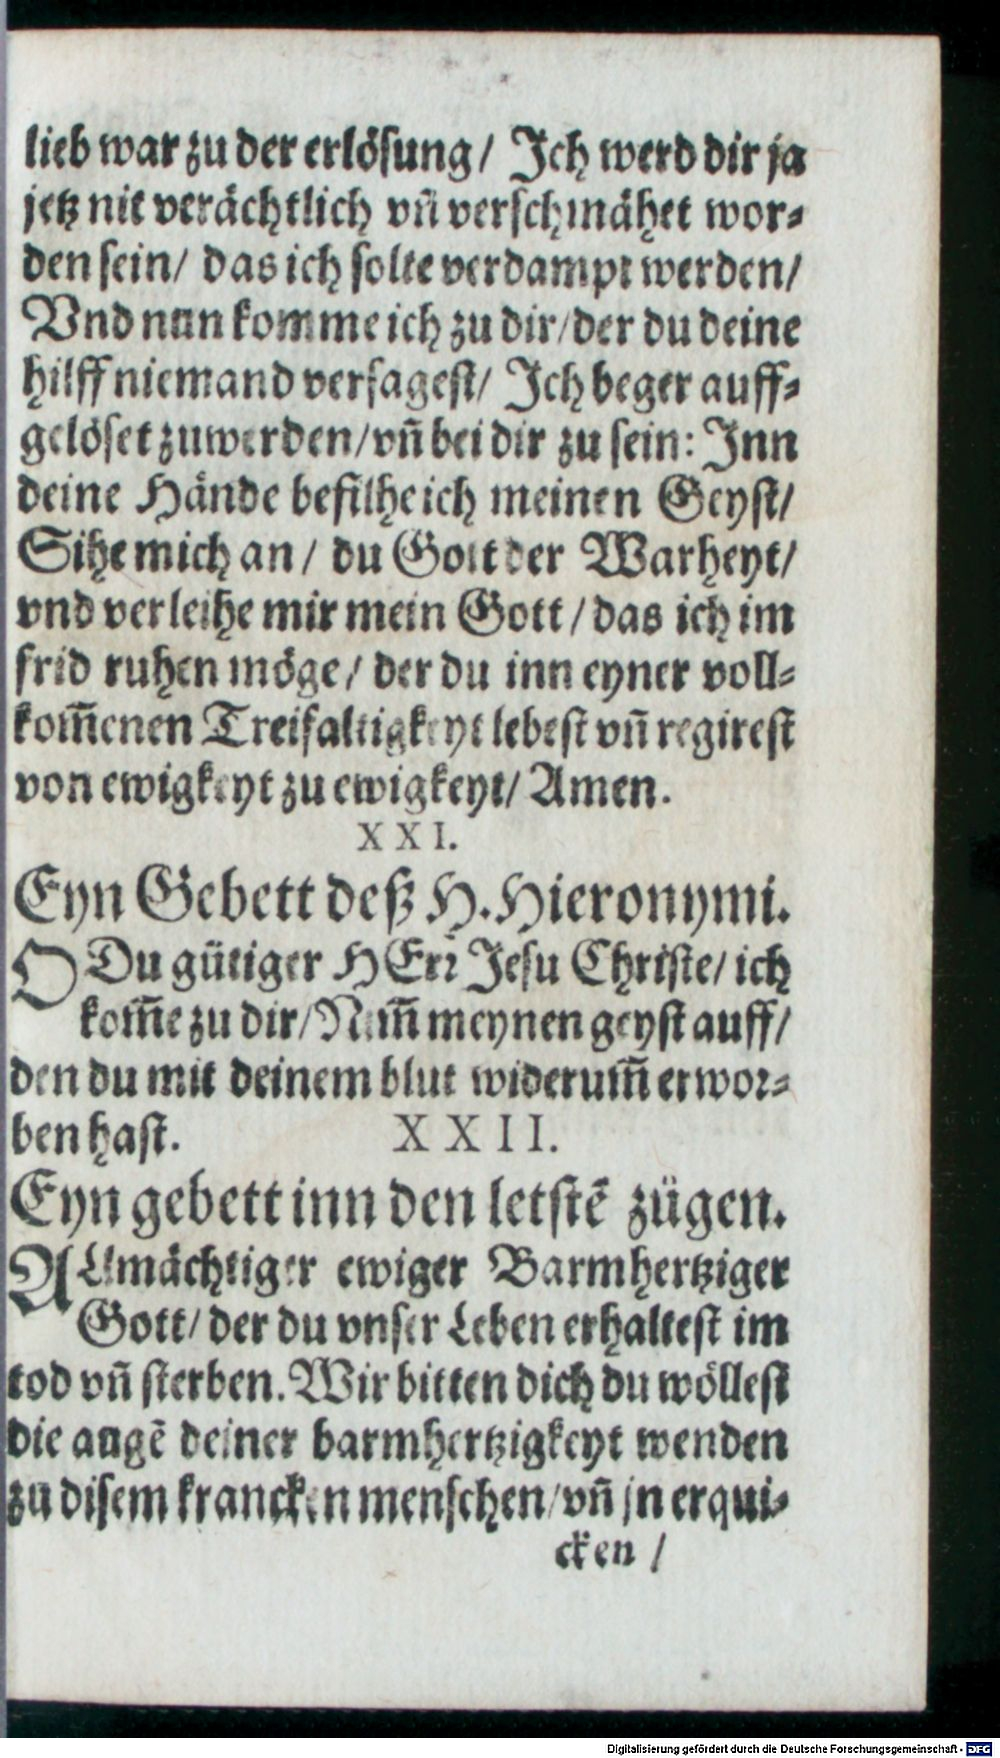 lieb war zu der erlösung/ Jch werd dir ja
jetz nit verächtlich vñ verschmähet wor-
den sein/ das ich solte verdampt werden/
Vnd nun komme ich zu dir/ der du deine
hilff niemand versagest/ Jch beger auff-
gelöset zuwerden/ vñ bei dir zu sein: Jnn
deine Hände befilhe ich meinen Geyst/
Sihe mich an/ du Gott der Warheyt/
vnd verleihe mir mein Gott/ das ich im
frid ruhen möge/ der du inn eyner voll-
kom̃enen Treifaltigkeyt lebest vñ regirest
von ewigkeyt zu ewigkeyt/ Amen.
XXI.
Eyn Gebett deß H. Hieronymi.
O Du gütiger HErꝛ Jesu Christe/ ich
kom̃e zu dir/ Nim̃ meynen geyst auff/
den du mit deinem blut widerum̃ erwor-
ben hast. XXII.
Eyn gebett inn den letstẽ zügen.
ALlmächtiger ewiger Barmhertziger
Gott/ der du vnser Leben erhaltest im
tod vñ sterben. Wir bitten dich du wöllest
die augẽ deiner barmhertzigkeyt wenden
zu disem krancken menschen/ vñ jn erqui-
cken /
Digitalisierung gefördert durch die Deutsche Forschungsgemeinschaft - DFG